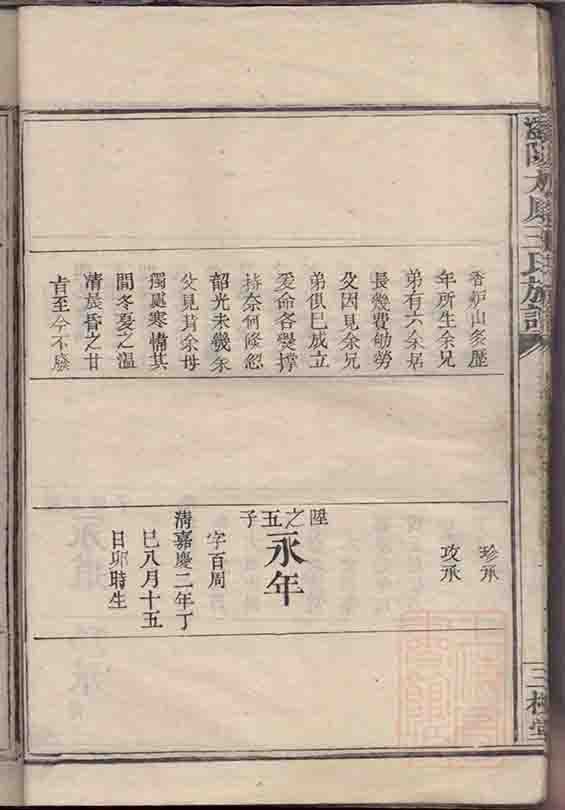 陽太原王氏族譜
三槐堂
香炉山矣歴
年所生余兄
弟有六余居
長幾費劬勞
父因見余兄
弟俱已成立
爰命各爨撑
持奈何倐忽
韶光未幾余
父見背余母
獨處寒幃其
間冬夏之温
凊晨昏之甘
旨至今不廢
珍承
攻承
陞之五子
永年
字百周
清嘉慶二年丁
巳八月十五
日卯時生